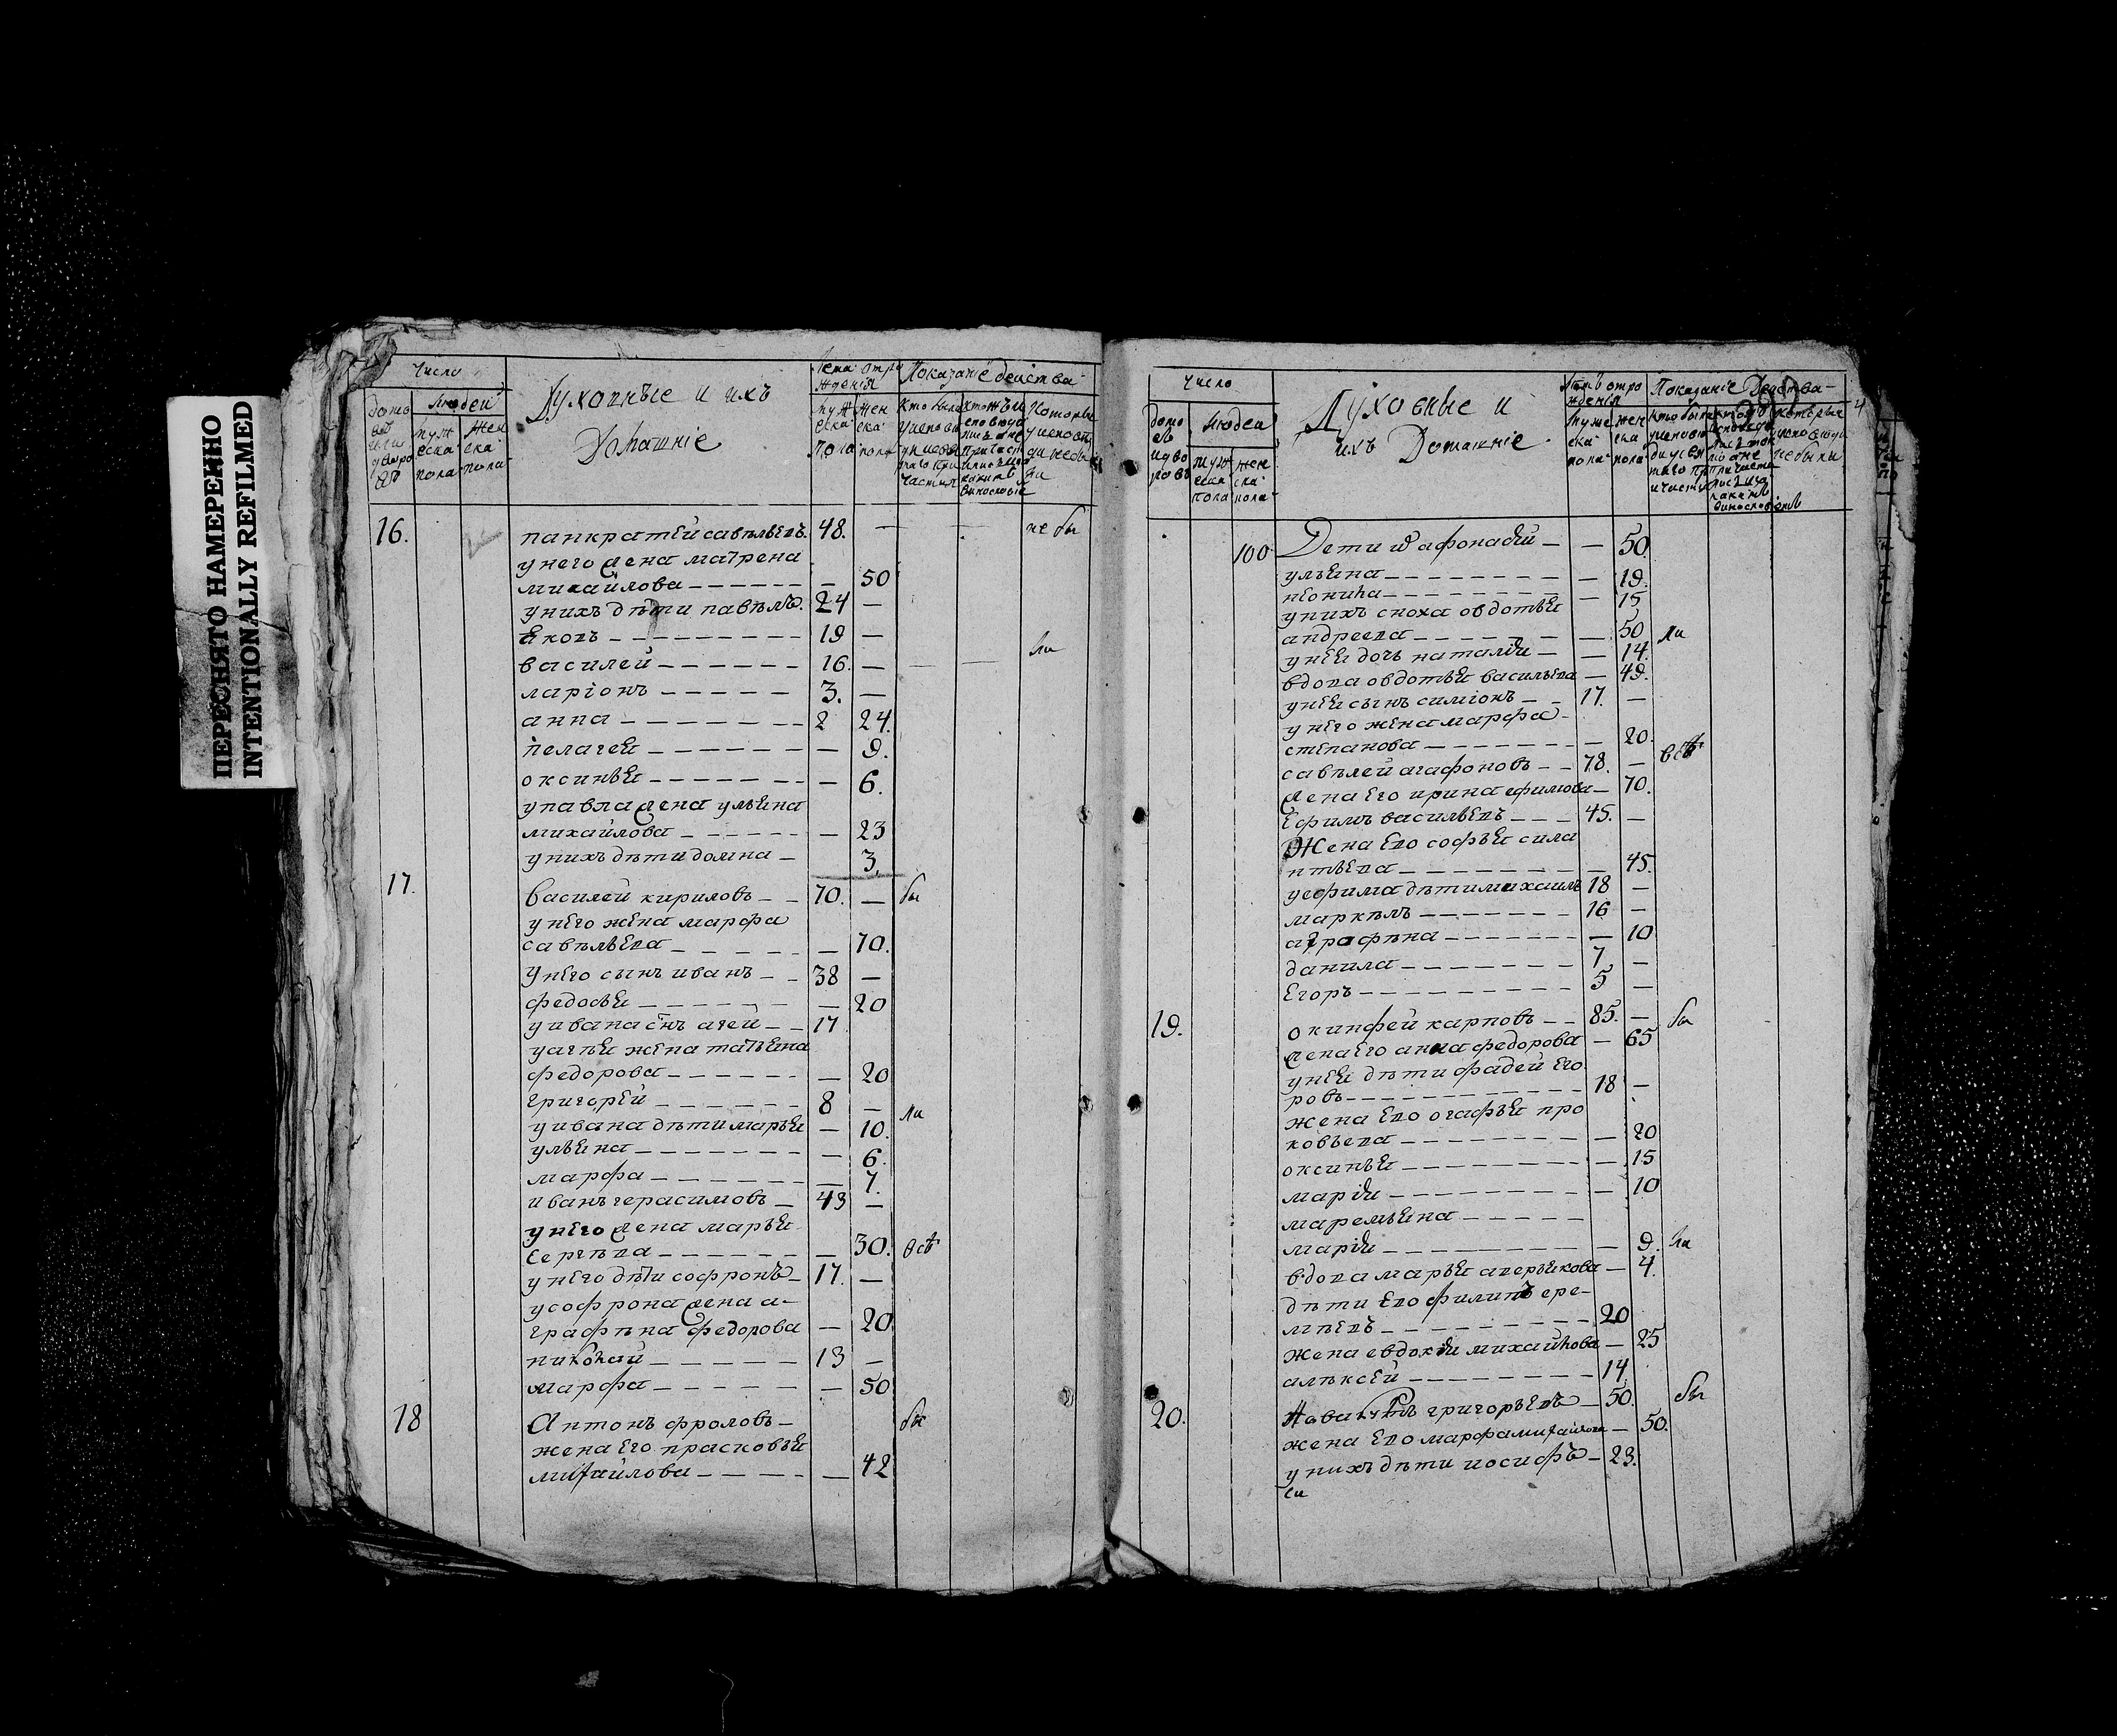 ПЕРЕСНЯТО НАМЕРЕННО
INTENTIONALLY REFILMED
Число
людей
Духовные и ихъ
Домашніе
Показаніе действа
муж
ска
пола
жен
ска
пола
16.
панкратей савельевъ. 48. —
не бы
у него жена матрена
михайлова — 50
у нихъ дѣти павелъ. 24 —
яковъ 19 —
василей 16. —
ли
ларіонъ 3. —
анна 2 24.
пелагея — 9.
оксинья — 6.
у павла жена ульяна
михайлова — 23
у нихъ дѣти домна — 3.
17.
василей кириловъ 70. —
бы
у него жена марфа
савѣльева — 70.
у него сынъ иванъ 38 —
федосья — 20
у ивана снъ агей 17
у агѣя жена татьяна
федорова — 20
григорей 8 —
ли
у ивана дѣти марья — 10.
ульяна — 6.
марфа — 7.
иванъ герасимовъ 43 —
у него жена марья
сергѣева — 30.
всѣ
у него дѣти софронъ 17. —
у софрона жена а-
графѣна федорова — 20
николай 13 —
марфа — 50
18
Антонъ фроловъ
бы
жена его прасковья
михайлова — 42
Число
людей
Духовные и
ихъ Домашніе
Показаніе Действа
100
— 50.
ульяна — 19.
— 15
у нихъ сноха овдотья
андреева — 50
ли
у неи дочь наталія — 14.
вдова овдотья васильева — 49.
у неи сынъ симіонъ 17. —
у него жена марфа
степанова — 20.
всѣ
савѣлей агафоновъ 78. —
жена его ирина ефимова — 70.
Ефимъ васильевъ 45. —
Жена ево софья сила
нтьева — 45.
у ефима дѣти михаилъ 18 —
маркѣлъ 16 —
аграфѣна — 10
данила 7 —
Егоръ 5 —
19.
окинфей карповъ 85. —
бы
жена его анна федорова — 65
у неи дѣти фадей Его
ровъ 18 —
жена ево огафья про
ковьева — 20
оксинья — 15
марія — 10
маремьяна
марія — 9.
ли
вдова марья аверьякова — 4.
дѣти ево филипъ ере-
мѣевъ 20
жена евдокія михайлова — 25
алѣксей 14.
20.
григорьевъ 50.
бы
жена ево марфа михайлова — 50.
у нихъ дѣти иосифъ 23.